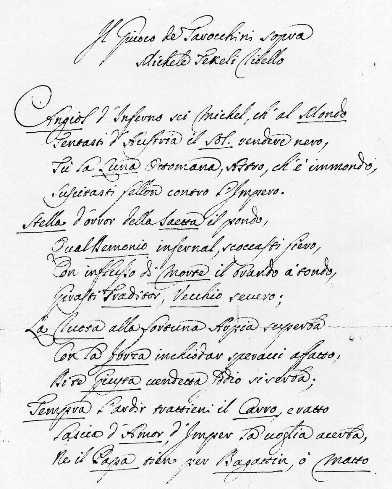 Il Giuoco de' Tarocchini sopra
Michele Tekeli Ribello
Angiol d'Inferno sei Michel, ch'al Mondo
Tentasti d'Austria il Sol. rendere nero,
Tù la Luna Ottomana, Astro, ch'è immondo,
Suscitasti fellon contro l'Impero.
Stella d'orror della Saetta il pondo,
Qual Demonio infernal scoccasti fiero,
Con influsso di Morte il brando à tondo,
Girasti Traditor, Vecchio severo;
La Ruota alla fortuna Arpia superba
Con la forza inchiodar sperasti affatto,
Giusta vendetta Iddio si serba;
Tempra l'ardir trattieni il Carro, e ratto
Lascia d'Amor, d'Imper la voglia acerba,
Ne il Papa tien per Bagattin, ò Matto